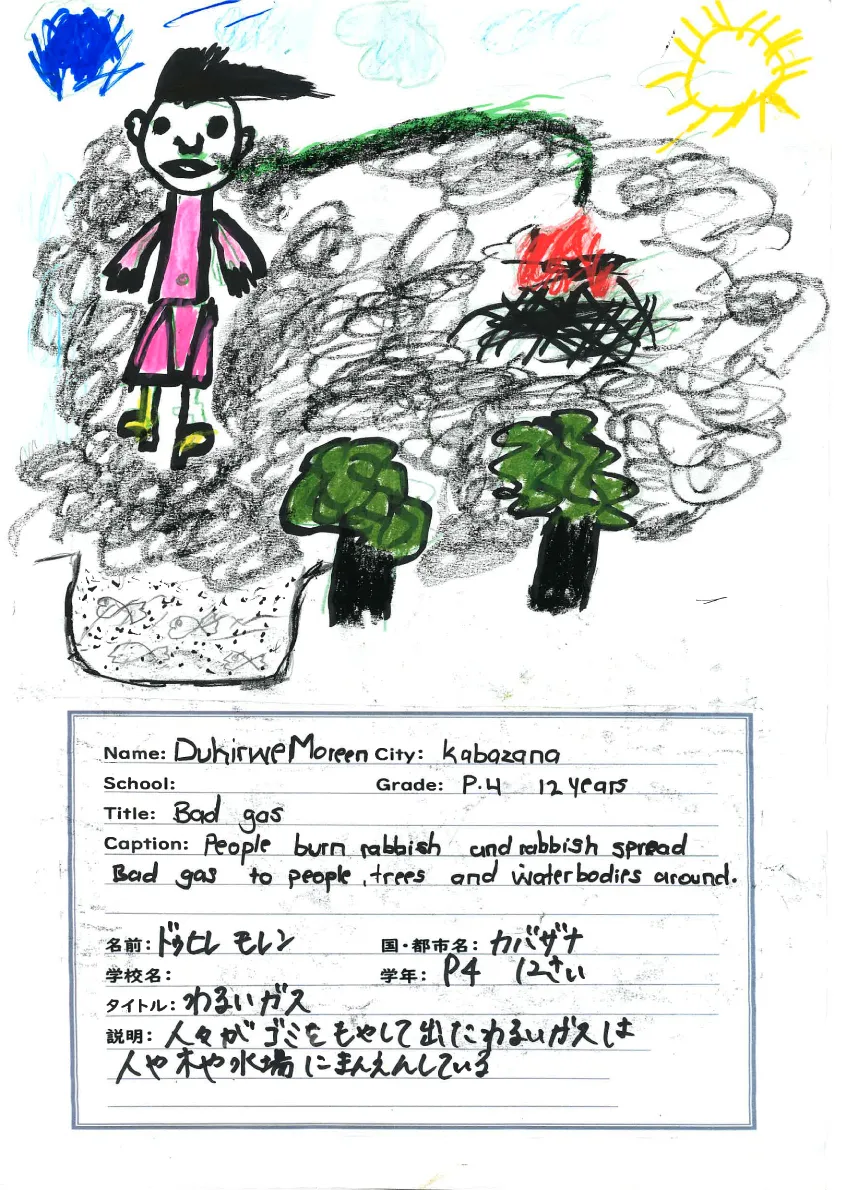 Name: Duhirwe Moreen City: Kabazana
School: Grade: P.4 12 years
Title: Bad gas
Caption: People burn rabbish and rabbish spread
Bad gas to people, trees and waterbodies around.
名前: ドゥヒレ モレン 国・都市名: カバザナ
学校名: 学年: P4 12さい
タイトル: わるいガス
説明: 人々が ゴミを もやして 出た わるいガスは
人や 木や 水場 に まんえんしている